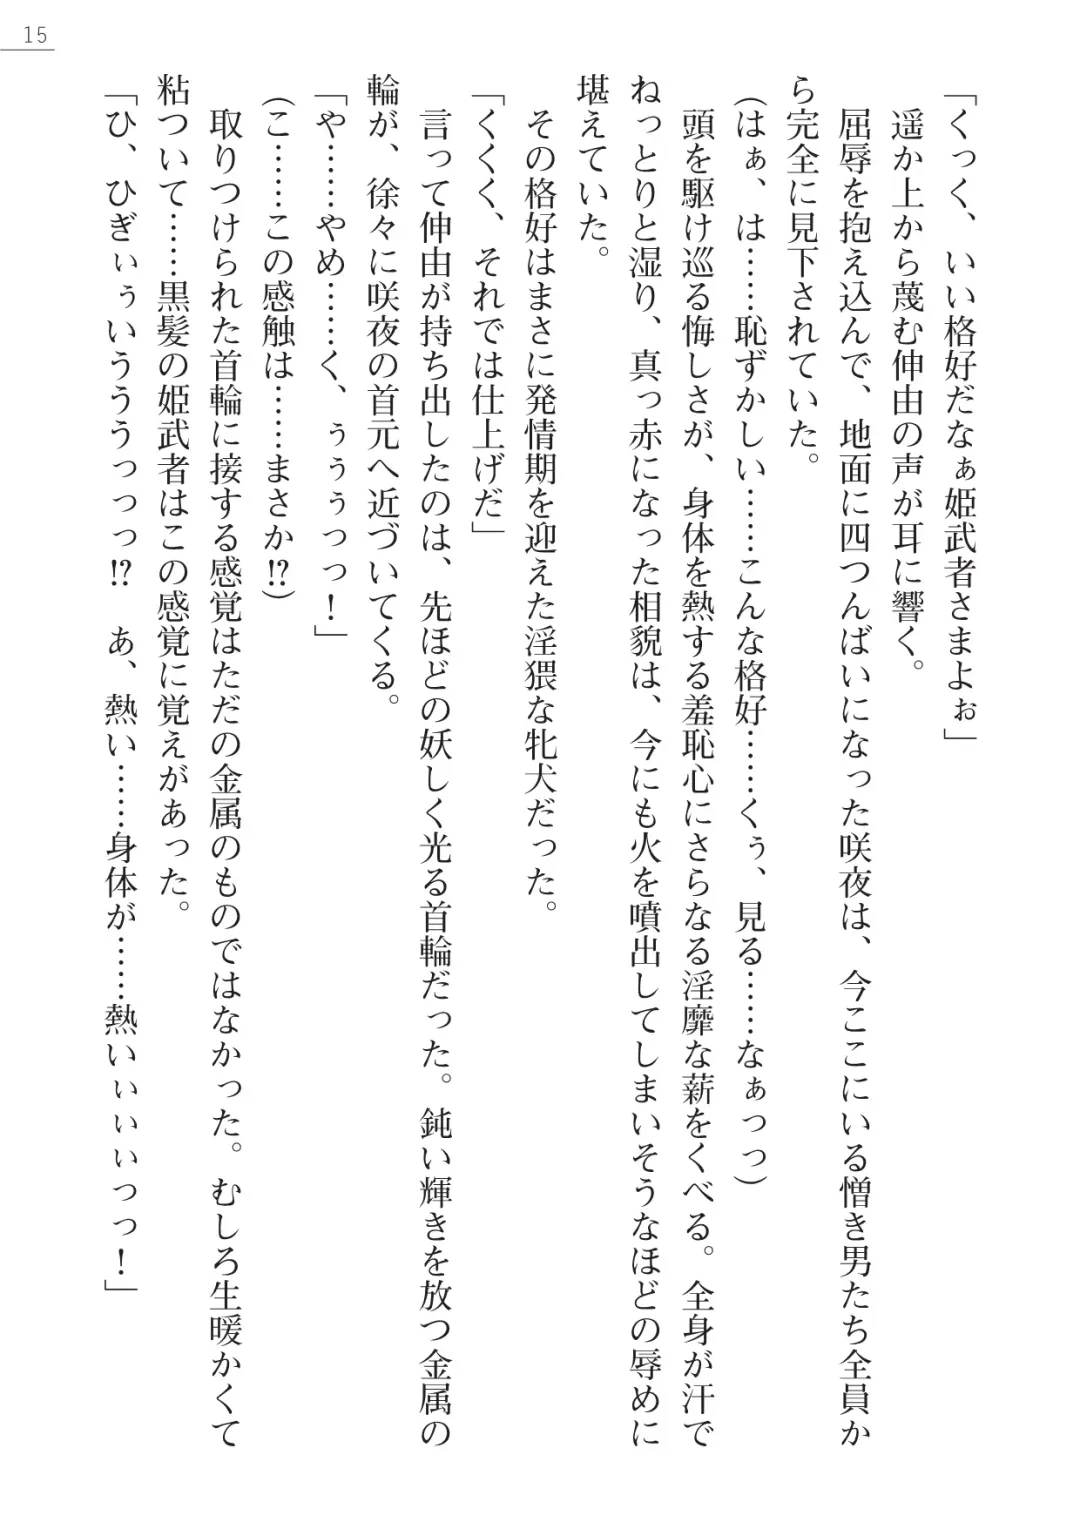 15
「くっく、いい格好だなぁ姫武者さまよぉ」
遥か上から蔑む伸由の声が耳に響く。
屈辱を抱え込んで、地面に四つんばいになった咲夜は、今ここにいる憎き男たち全員か
ら完全に見下されていた。
(はぁ、は……恥ずかしい……こんな格好……くぅ、見る……なぁっっ)
頭を駆け巡る悔しさが、身体を熱する羞恥心にさらなる淫靡な薪をくべる。全身が汗で
ねっとりと湿り、真っ赤になった相貌は、今にも火を噴出してしまいそうなほどの辱めに
堪えていた。
その格好はまさに発情期を迎えた淫猥な牝犬だった。
「くくく、それでは仕上げだ」
言って伸由が持ち出したのは、先ほどの妖しく光る首輪だった。鈍い輝きを放つ金属の
輪が、徐々に咲夜の首元へ近づいてくる。
「や……やめ……く、ぅぅぅっっ！」
(こ……この感触は……まさか!?)
取りつけられた首輪に接する感覚はただの金属のものではなかった。むしろ生暖かくて
粘ついて……黒髪の姫武者はこの感覚に覚えがあった。
「ひ、ひぎぃぅいうううっっっ!?　あ、熱い……身体が……熱いぃぃぃっっ！」